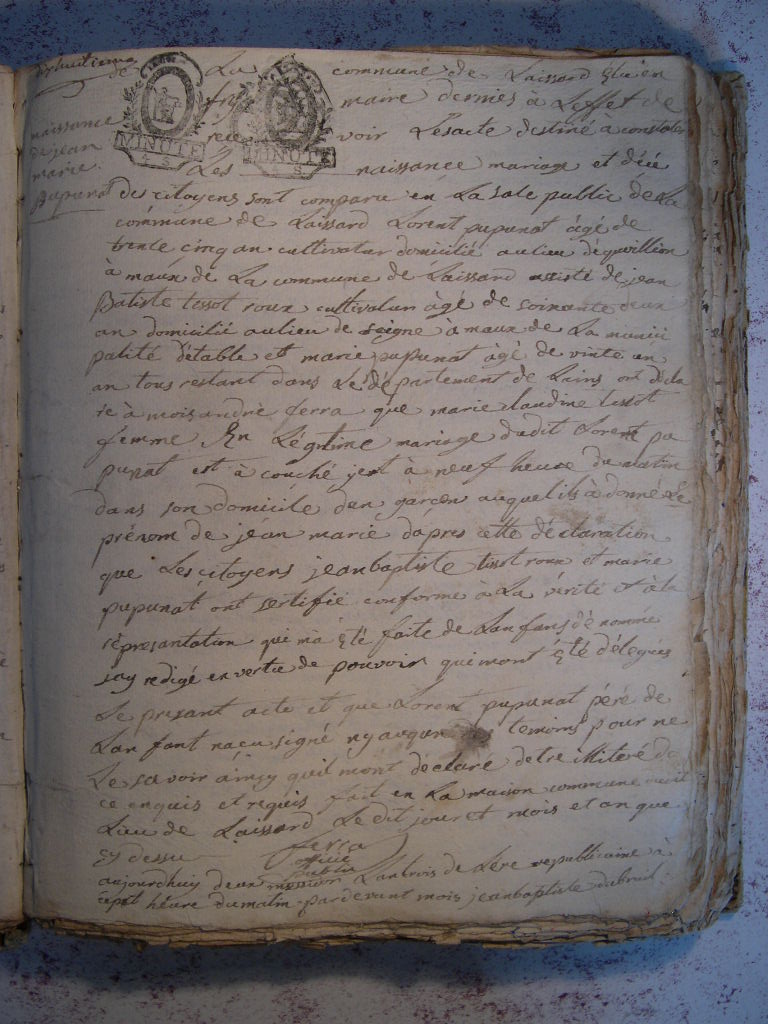 dixhuitieme
naissance
de jean
marie
pupunat
MINUTE
4 S
MINUTE
S
de La commune de Laissard Elu en
maire dernier à Leffet de
recevoir Les acte destiné à constater
Les naissance mariage et décé
des citoyens sont comparu en La sale public de La
commune de Laissard Lorent pupunat âgé de
trente cinq an cultivatur domicilié au lieu déquvillion
à maux de La commune de Laissard assisté de jean
Batiste tissot roux cultivatur âgé de soixante deux
an domicilié au lieu de à maux de La munici
palité détable et marie pupunat âgé de vinte un
an tous restant dans Le département de Lains ont décla
ré à mois andrè ferra que marie claudine tissot
femme En Légitime mariage dudit Lorent pu
punat est à couché jert à neuf heure du matin
dans son domicile dun garçon auquel ils à donné Le
prénom de jean marie dapres cette déclaration
que Les citoyens jean baptiste tissot roux et marie
pupunat ont sertifié conforme à La vérité et à la
représantation qui ma Eté faite de Lanfans dénommé
jay redigé en vertu de pouvoir qui mont Eté délégués
Le presant acte et que Lorent pupunat pére de
Lanfant naeu signé ny auqun temoins pour ne
Le savoir àinsy quil mont déclaré detre illiteré de
ce enquis et requis fait en La maison commune
Lieu de Laissard Le dit jour et mois et an que
cy dessu ferra
officié
public
aujourdhuy deux Lan trois de Lére republicaine à
sept heure du matin pardevant mois jean baptiste dubreul